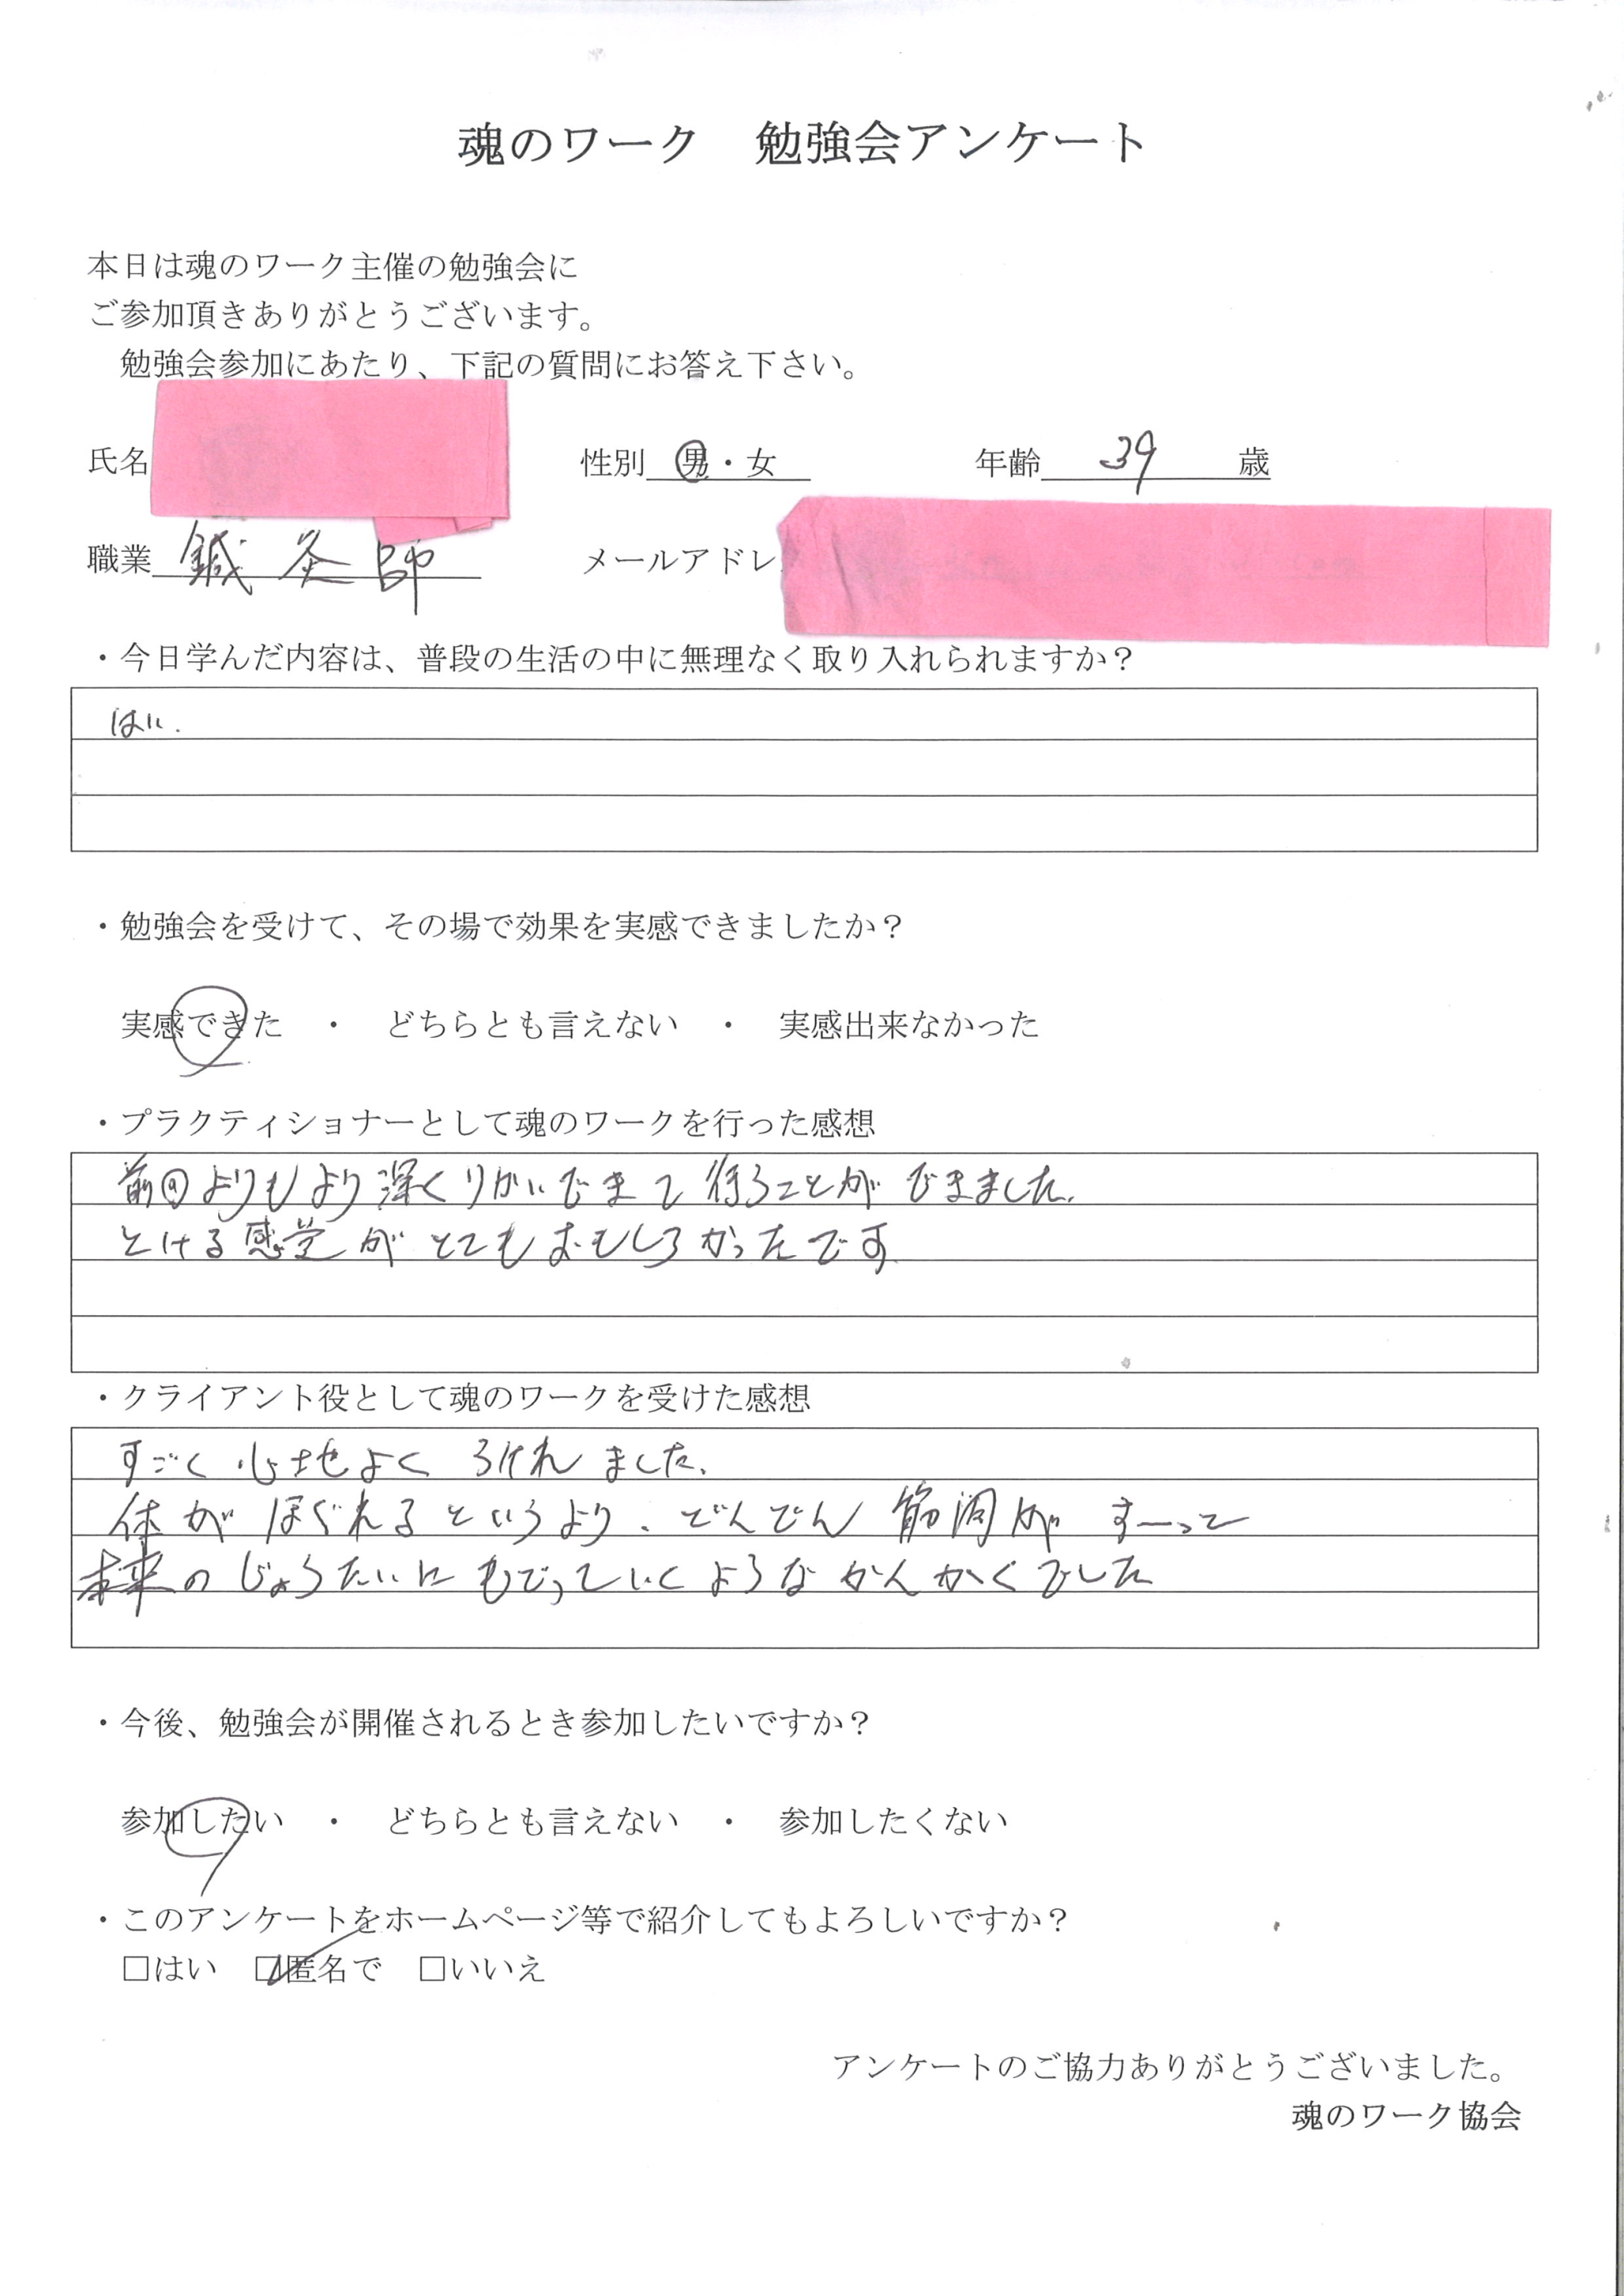 魂のワーク 勉強会アンケート
本日は魂のワーク主催の勉強会に
ご参加頂きありがとうございます。
勉強会参加にあたり、下記の質問にお答え下さい。
氏名 性別 男・女 年齢 39 歳
職業 鍼灸師 メールアドレ
・今日学んだ内容は、普段の生活の中に無理なく取り入れられますか？
はい.
・勉強会を受けて、その場で効果を実感できましたか？
実感できた ・ どちらとも言えない ・ 実感出来なかった
・プラクティショナーとして魂のワークを行った感想
前回よりもより深くりかいできて得ることができました.
とける感覚がとてもおもしろかったです
・クライアント役として魂のワークを受けた感想
すごく心地よくうけれました.
体がほぐれるというより、どんどん筋肉がすーって
本来のじょうたいにもどっていくようなかんかくでした
・今後、勉強会が開催されるとき参加したいですか？
参加したい ・ どちらとも言えない ・ 参加したくない
・このアンケートをホームページ等で紹介してもよろしいですか？
□はい □匿名で □いいえ
アンケートのご協力ありがとうございました。
魂のワーク協会